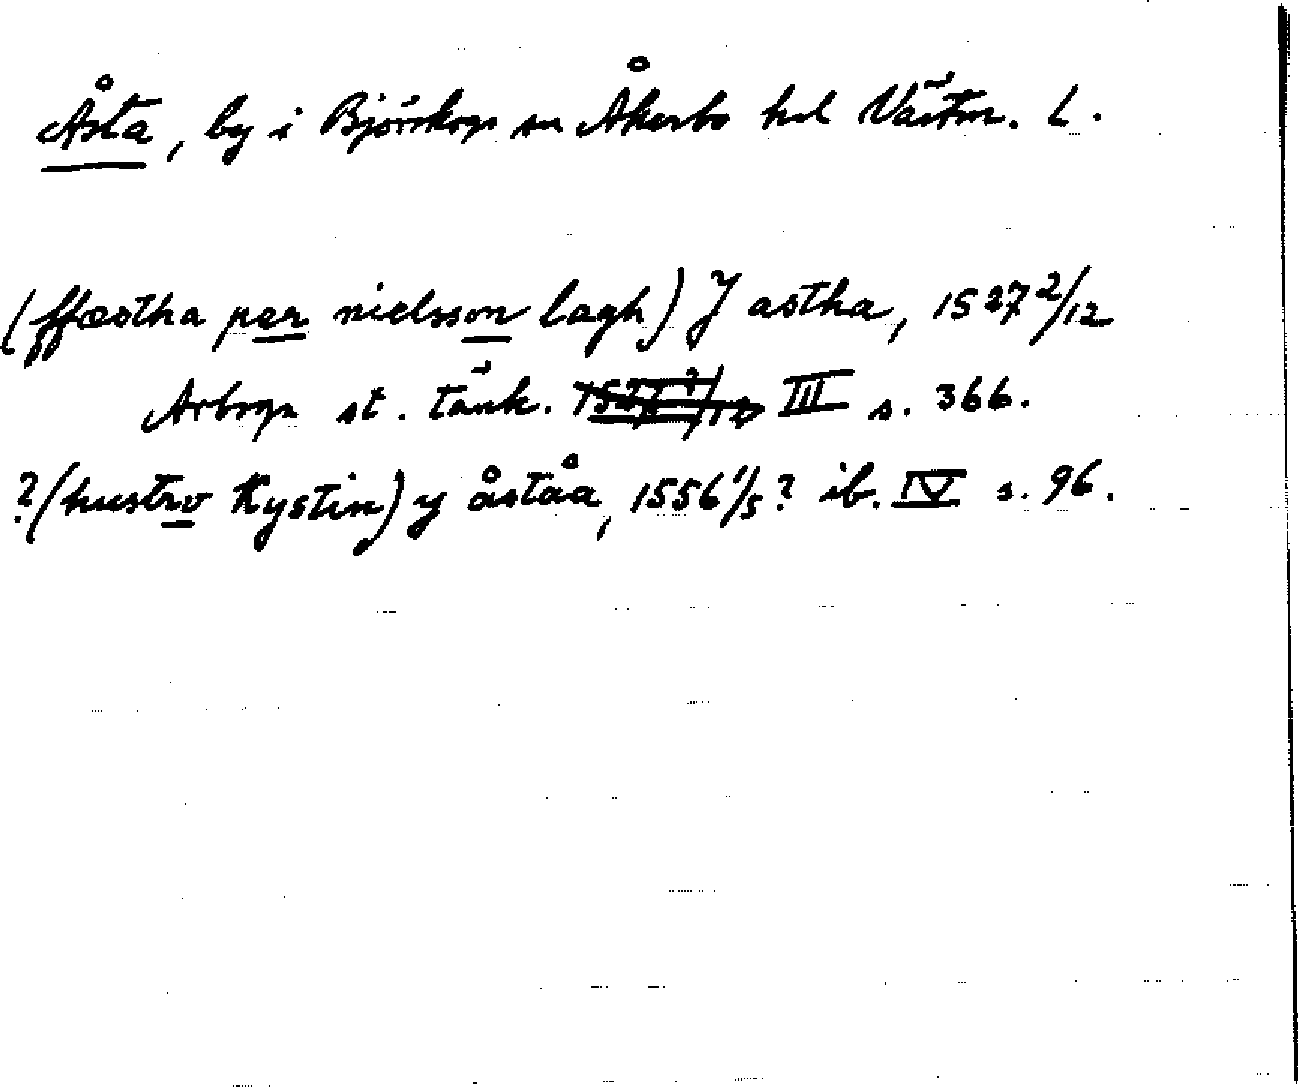 Åsta, by i Björskogs sn Åkerbo hd Västm. L.
(ffæstha per nielsson lagh) J astha, 1527 2/12
Arboga st. tänk. III s. 366.
? (hustrv Kystin) y åståa, 1556 1/5? ib. IV s. 96.